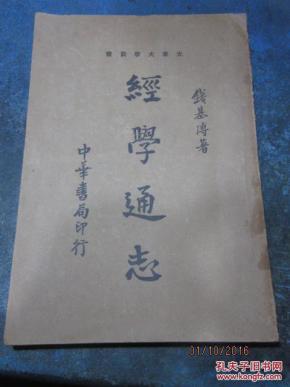 光華大學叢書
錢基博著
經學通志
中華書局印行
01/10/2016
孔夫子旧书网